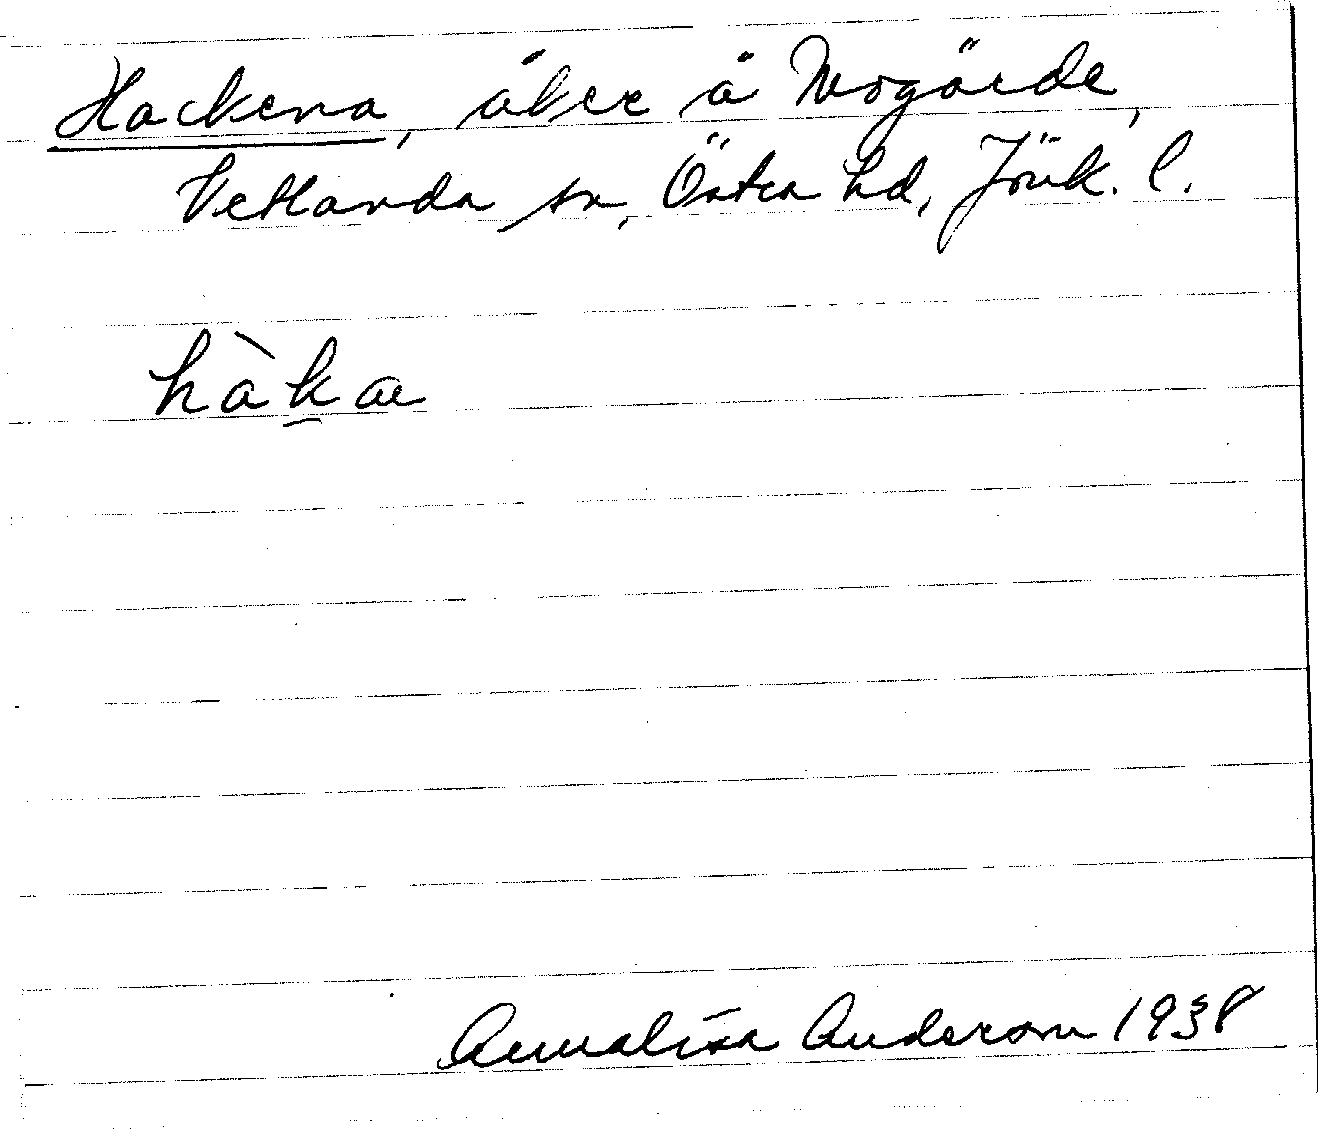 Hackena, åker å Mogärde,
Vetlanda sn, Östra hd, Jönk. l.
hàkæ
Annalisa Anderson 1938